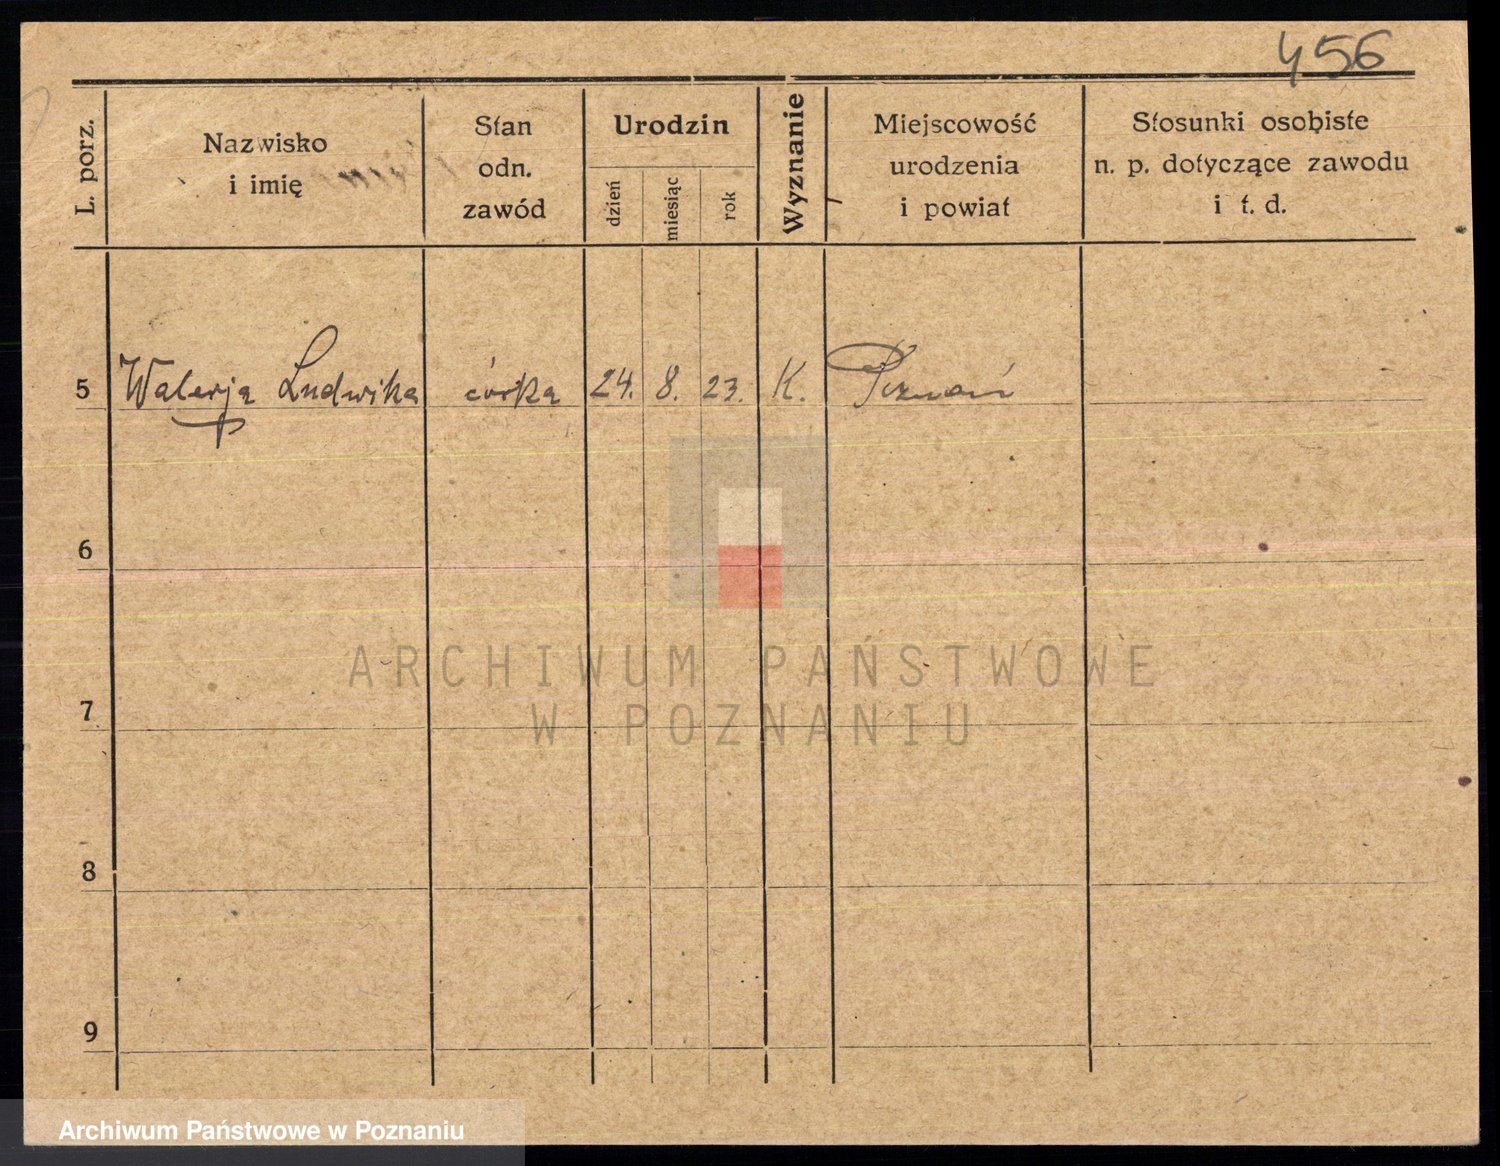 456
L. porz.
Nazwisko
i imię
Stan
odn.
zawód
Urodzin
dzień
miesiąc
rok
Wyznanie
Miejscowość
urodzenia
i powiat
Stosunki osobiste
n. p. dotyczące zawodu
i t. d.
5 Walerja Ludwika córka 24. 8. 23. K. Poznań
6
7
8
9
ARCHIWUM PAŃSTWOWE
W POZNANIU
Archiwum Państwowe w Poznaniu